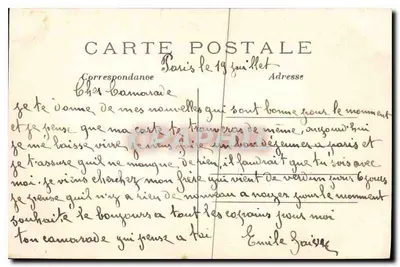 CARTE POSTALE
Paris le 19 juillet
Correspondance Adresse
Cher Camarade
je te donne de mes nouvelles qui sont bonne pour le moment
et je pense que ma carte te trouveras de meme, aujourd'hui
je me laisse vivre, je viens de faire un bon déjeuner a paris et
je t'assure qu'il ne manque de rien, il faudrait que tu sois avec
moi. je viens cherchez mon frère qui vient de verdun pour 6 jours
je pense quil n'y a rien de nouveau a nozer pour le moment
souhaite le bonjours a tout les copains pour moi
ton camarade qui pense a toi Emile